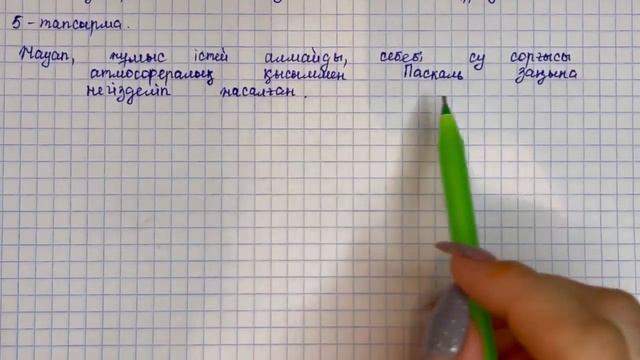 5 - тапсырма.
Жауап, жұмыс істей алмайды, себебі су сорғысы
атмосфералық қысыммен Паскаль заңына
негізделіп жасалған.